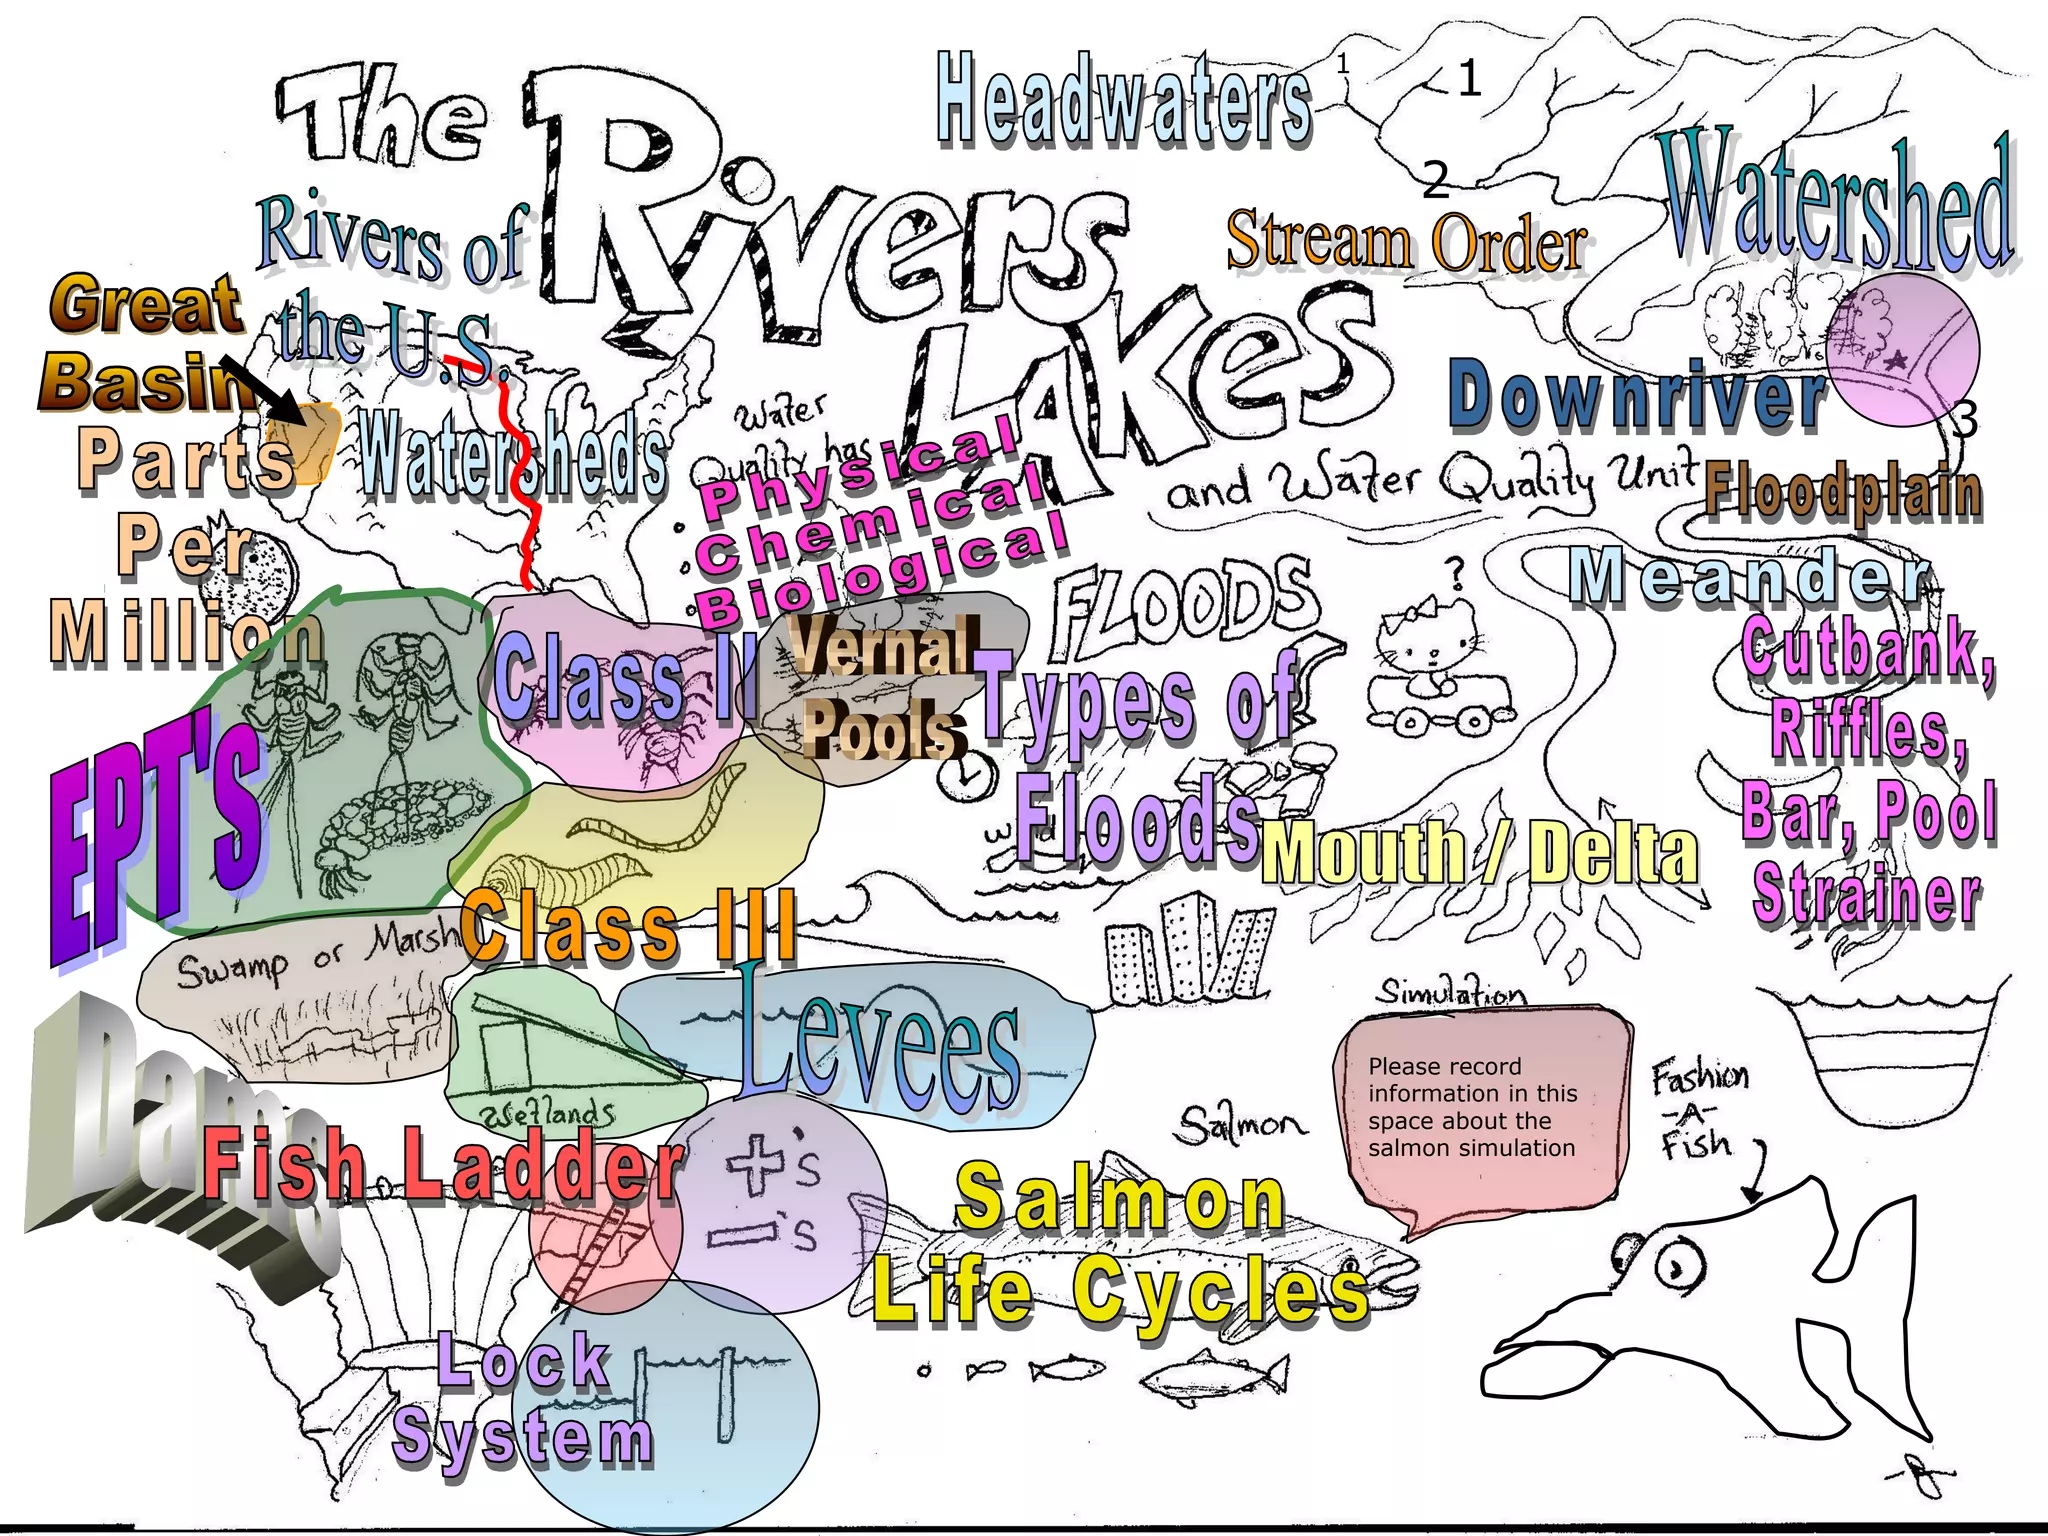 The
Rivers
Lakes
and Water Quality Unit
Headwaters
1
1
2
3
Watershed
Stream Order
Rivers of
the U.S.
Great
Basin
Parts
Per
Million
Watersheds
Water
Quality has
Physical
Chemical
Biological
Downriver
Floodplain
Meander
Cutbank,
Riffles,
Bar, Pool
Strainer
FLOODS
?
Types of
Floods
Mouth / Delta
Class II
Vernal
Pools
EPT's
Class III
Swamp or Marsh
Levees
Wetlands
Dams
Fish Ladder
+'s
-'s
Lock
System
Salmon
Salmon
Life Cycles
Simulation
Please record
information in this
space about the
salmon simulation
Fashion
-A-
Fish